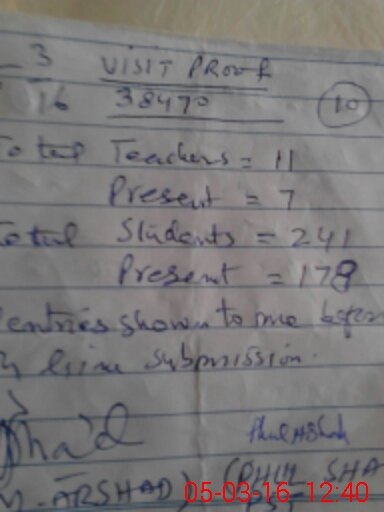 3 VISIT PROOF
16 38470 10
Total Teachers = 11
Present = 7
Total Students = 241
Present = 178
entries shown to me befor
submission.
M. ARSHAD) SHA
PST
05-03-16 12:40